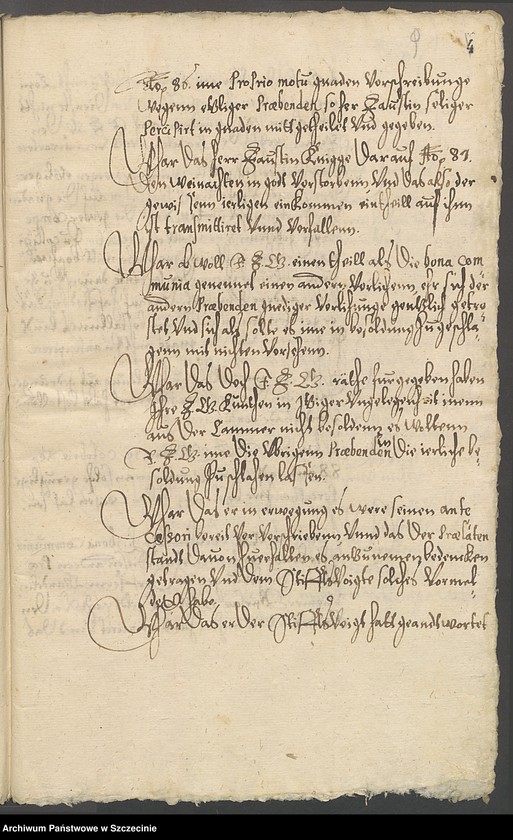 4
Ao. 86. ime Proprio motu gnaden Vorschreibunge
wegenn etzliger Præbenden so Her Faustin seliger
Percipirt in gnaden mittgetheilet Vnd gegeben.
War das Herr Faustin Knigge darauf Ao. 87.
den Weinachten in gott Vorstorbenn Vnd das also der
gewis senn ierligen einkommen ein theill auf ihnn
ist transmittiret Vnnd Vorfallenn.
War ob woll E. F. G. einen theill als die bona com
munia genennet einen andern Vorligenn, ehr sich der
andern Præbenden gnediger Vorlihunge gentzlich getro
stet Vnd sich als solte es ime in besoldung zu geschla-
genn mit nichten Vorsehenn.
War das doch E. F. G. räthe furgegeben haben
Ihre F. G. kunthen in itziger Vngelegenheit imenn
aus der Cammer nicht besoldenn, es woltenn
E. F. G. ime die Vbrigenn Præbenden in die ierliche be-
soldung zuschlahen lassen.
War das er in erwegung es were seinen ante
cessori bereit Vor Vorschriebenn Vnnd das der Prælaten
standt dauon zuerfallen, es anzunemen bedencken
getragen Vnd dem Stifftsvoigte solches Vormel-
det habe.
War das er der Stifftsvoigt hatt geandtwortet
Archiwum Państwowe w Szczecinie